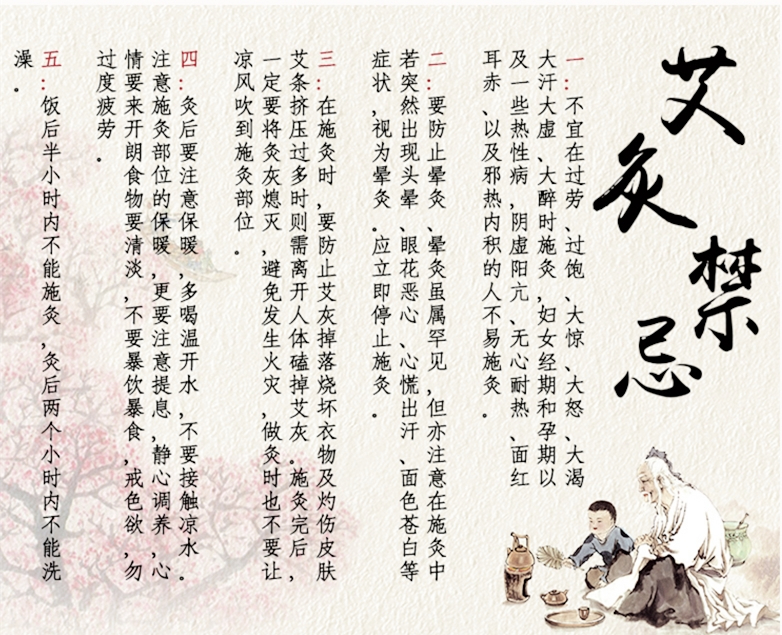 艾灸禁忌
一：不宜在过劳、过饱、大惊、大怒、大渴
大汗大虚、大醉时施灸，妇女经期和孕期以
及一些热性病，阴虚阳亢、无心耐热、面红
耳赤、以及邪热内积的人不易施灸。
二：要防止晕灸、晕灸虽属罕见，但亦注意在施灸中
若突然出现头晕、眼花恶心、心慌出汗、面色苍白等
症状，视为晕灸。应立即停止施灸。
三：在施灸时，要防止艾灰掉落烧坏衣物及灼伤皮肤
艾条挤压过多时则需离开人体磕掉艾灰。施灸完后，
一定要将灸灰熄灭，避免发生火灾，做灸时也不要让
凉风吹到施灸部位。
四：灸后要注意保暖，多喝温开水，不要接触凉水。
注意施灸部位的保暖，更要注意提息，静心调养，心
情要来开朗食物要清淡，不要暴饮暴食，戒色欲，勿
过度疲劳。
五：饭后半小时内不能施灸，灸后两个小时内不能洗
澡。